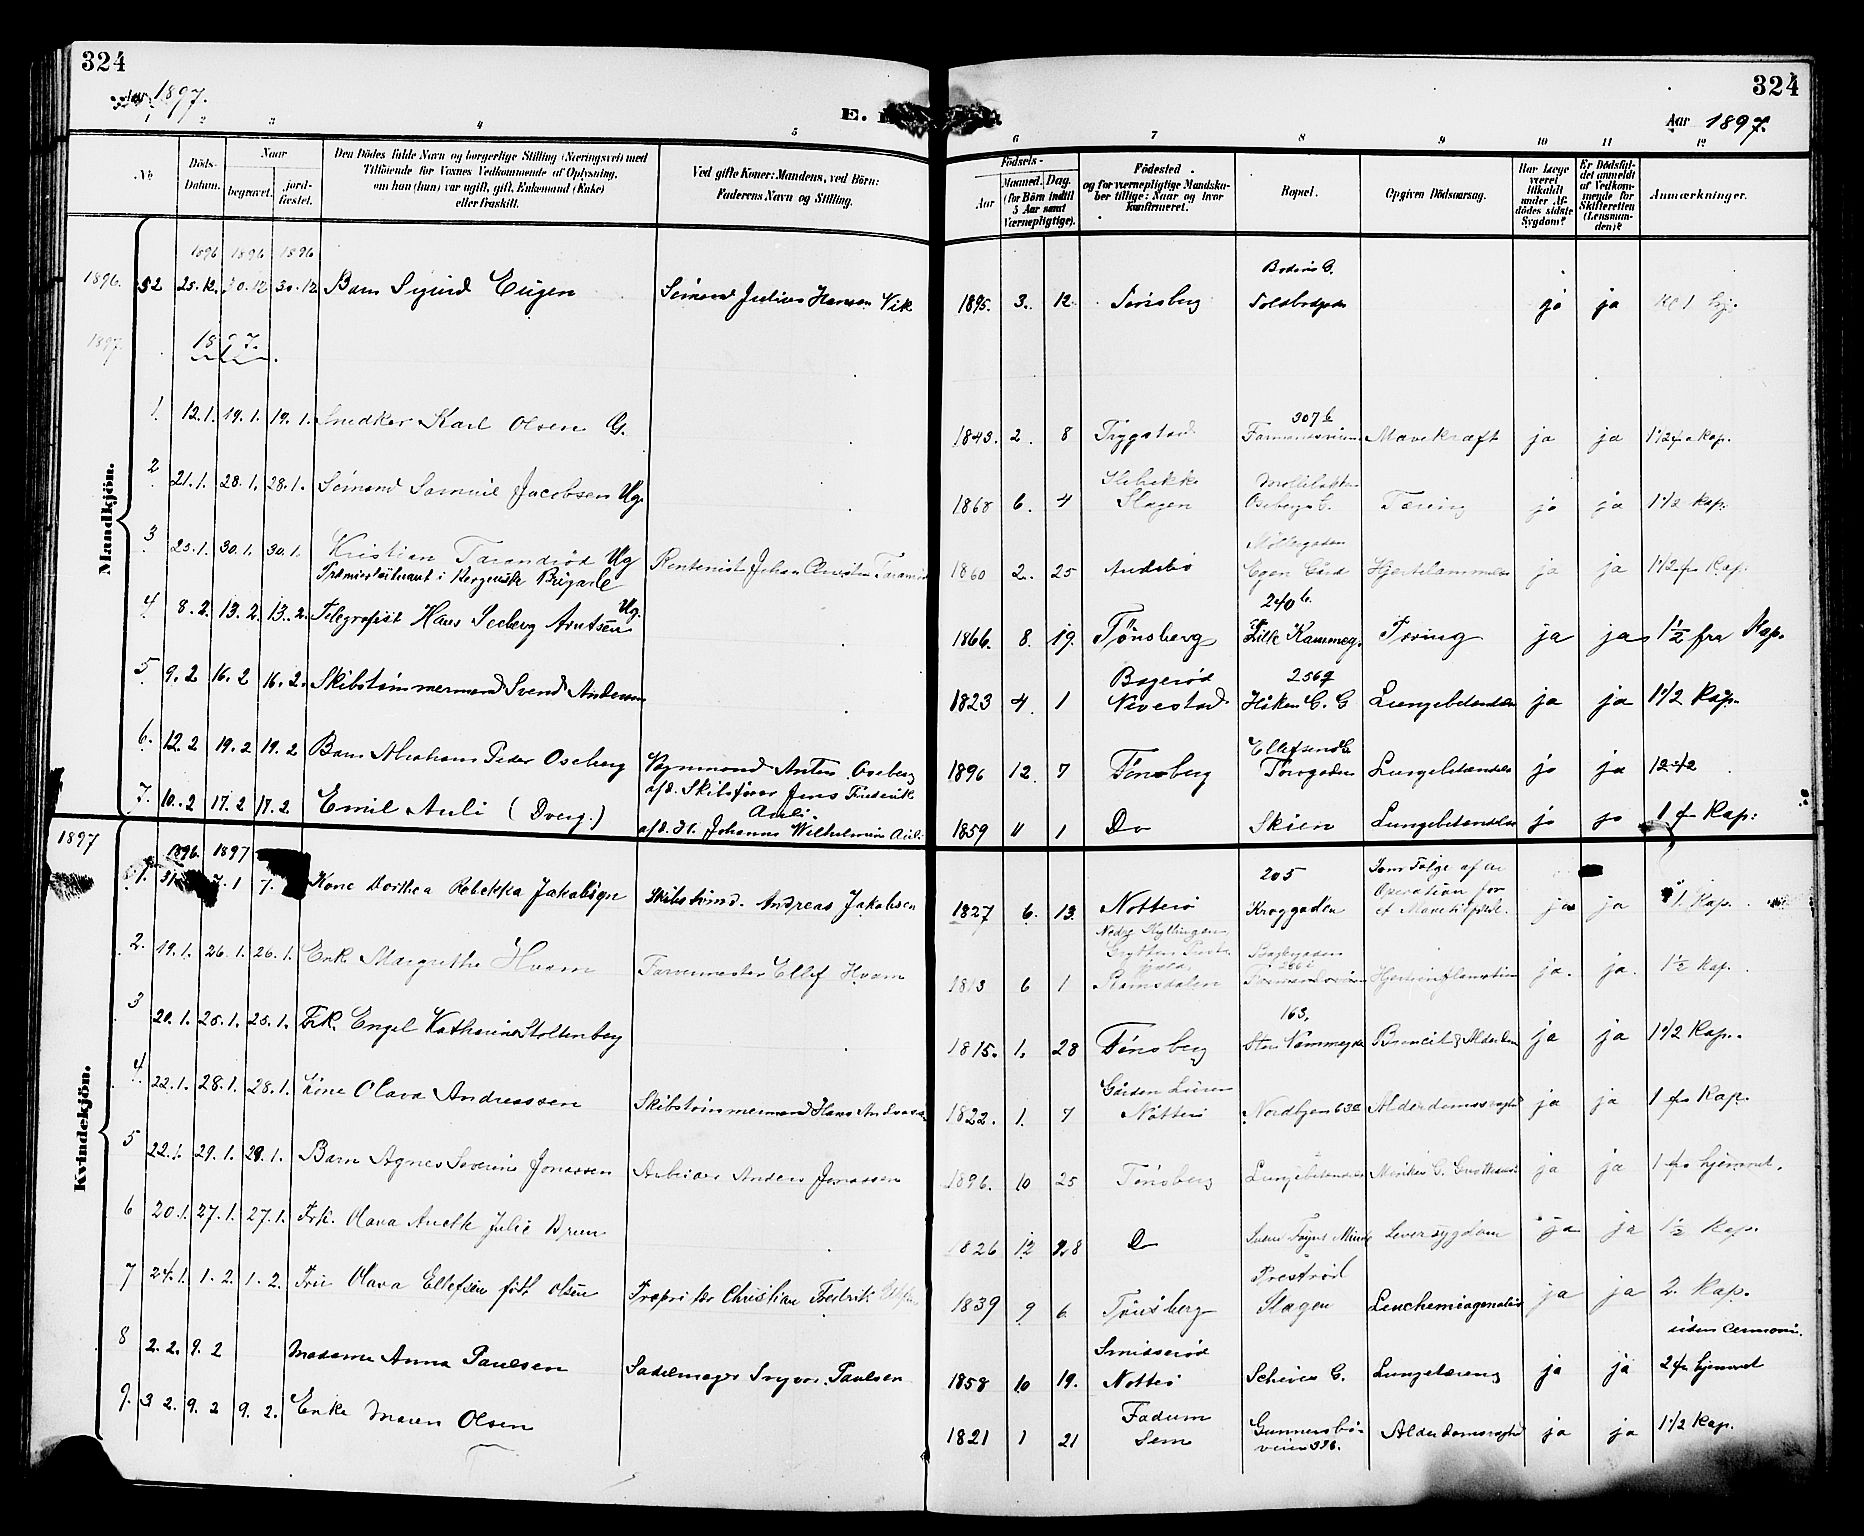 324
324
Aar 1897.
E.
Aar 1897.
1 2 3 4 5 6 7 8 9 10 11 12
No
Döds-Datum.
Naar
begravet.
jord-fæstet.
Den Dödes fulde Navn og borgerlige Stilling (Næringsvei) med
Tilföiende for Voxnes Vedkommende af Oplysning,
om han (hun) var ugift, gift, Enkemand (Enke)
eller fraskilt.
Ved gifte Koner: Mandens, ved Börn:
Faderens Navn og Stilling.
Födsels-
Aar
Maaned.
Dag.
(for Börn indtil
5 Aar samt
Værnepligtige).
Födested
og for værnepligtige Mandska-
ber tillige: Naar og hvor
konfirmeret.
Bopæl.
Opgiven Dödsaarsag.
Har Læge
været
tilkaldt
under Af-
dödes sidste
Sygdom?
Er Dödsfal-
det anmeldt
af Vedkom-
mende for
Skifteretten
(Lensman-
den)?
Anmærkninger.
1896 1896 1896
1896. 52 25.12. 30.12 30.12 Barn Sigurd Eugen Sømand Julius Hansen Vik 1895. 3. 12. Tønsberg Toldbodgaden ja ja
1897. 1897.
Mandkjön.
1. 12.1. 19.1. 19.1. Snedker Karl Olsen G. 1843. 2. 8 Trygstad 307b Mavekræft ja ja 1 1/2 fra Kap.
2 21.1. 28.1. 28.1. Sømand Samuel Jacobsen Ug. 1868 6. 4 Slagen Oseberg G. Tæring ja ja 1 1/2 Kap.
3 25.1. 30.1. 30.1. Kristian Tarandrød Ug
Premierløitnant i Bergenske Brigade Rentenist Johan 1860 2. 25 Andebø Møllergaden
Egen Gård Hjertelammelse ja ja 1 1/2 fra Kap.
4. 8.2. 13.2. 13.2. Telegrafist Hans Seeberg Arntsen Ug. 1866. 8. 19. Tønsberg 240b.
Lille Kammeg. Tæring ja ja 1 1/2 fra Kap.
5 9.2 16.2 16.2. Skibstømmermand Svend Andersen 1823 4. 1 2569
Håken G. G Lungebetændelse ja ja 1 1/2 Kap.
6. 12.2 19.2 19.2 Barn Abraham Peder Oseberg Anton Oseberg 1896 12. 7 Tønsberg Ellefsens G.
Torvgaden Lungebetændelse ja ja 12-1/2
7. 10.2 17.2 17.2. Emil Auli (Dverg.) afd. Skibsfører Jens Frederik
Auli.
afd. H. Johanne Wilhelmine Auli 1859 11 1 Do Skien Lungebetændelse ja ja 1 fr Kap.
1897
Kvindekjön.
1896. 1897
1. 31 7.1 7. Kone Dorthea Rebekka Jakobsen Skibstømd. Andreas Jakobsen 1827 6. 13. Nøtterø 205
Kroggaden Som Følge af en
Operation for
et Mavetilfælde. ja ja 1. Kap.
2. 19.1. 26.1. 26.1. Enk. Margrethe Hvam Farvemester Ellef Hvam 1813 6 1 Romsdalen ja. ja. 1 1/2 Kap.
3 20.1. 25.1. 25.1. Frk. Engel Kathrine Stoltenberg 1815. 1. 28 Tønsberg 163.
Store Kammegade Broncit & Alderdom ja ja 1 1/2 Kap.
4. 22.1. 28.1. 28.1. Kone Olava Andreassen Skibstømmermand Hans Andreassen 1822. 1. 7 Gården
Nøtterø Nordbyen 63a Alderdomssvaghed ja ja 1 fra Kap.
5 22.1. 29.1. 29.1. Barn Agnes Severine Jonassen Arbeider Anders Jonassen 1896. 10 25 Tønsberg Lungebetændelse ja ja 1 fra hjemmet.
6 20.1. 27.1. 27.1. Frk. Olava Aneth Julie Brun 1826 12 28 Do Leversygdom ja ja 1 1/2 Kap.
7 24.1. 1.2. 1.2. Frue Olava Ellefsen født Olsen Proprietær Christian Fredrik 1839 9 6 Tønsberg Prestrød
Slagen ja ja 2. Kap.
8 2.2. 9.2 Madame Anna Paulsen Sadelmager Paulsen 1858 10 19. Smidserød
Nøtterø G. Lungetæring ja ja uden Ceremoni.
2 fr hjemmet
9. 3.2. 9.2 9.2. Enke Maren Olsen 1821 1 21 Fadum
Sem Gunnersbø-
veien 396. Alderdomssvaghed ja ja 1 1/2 Kap.